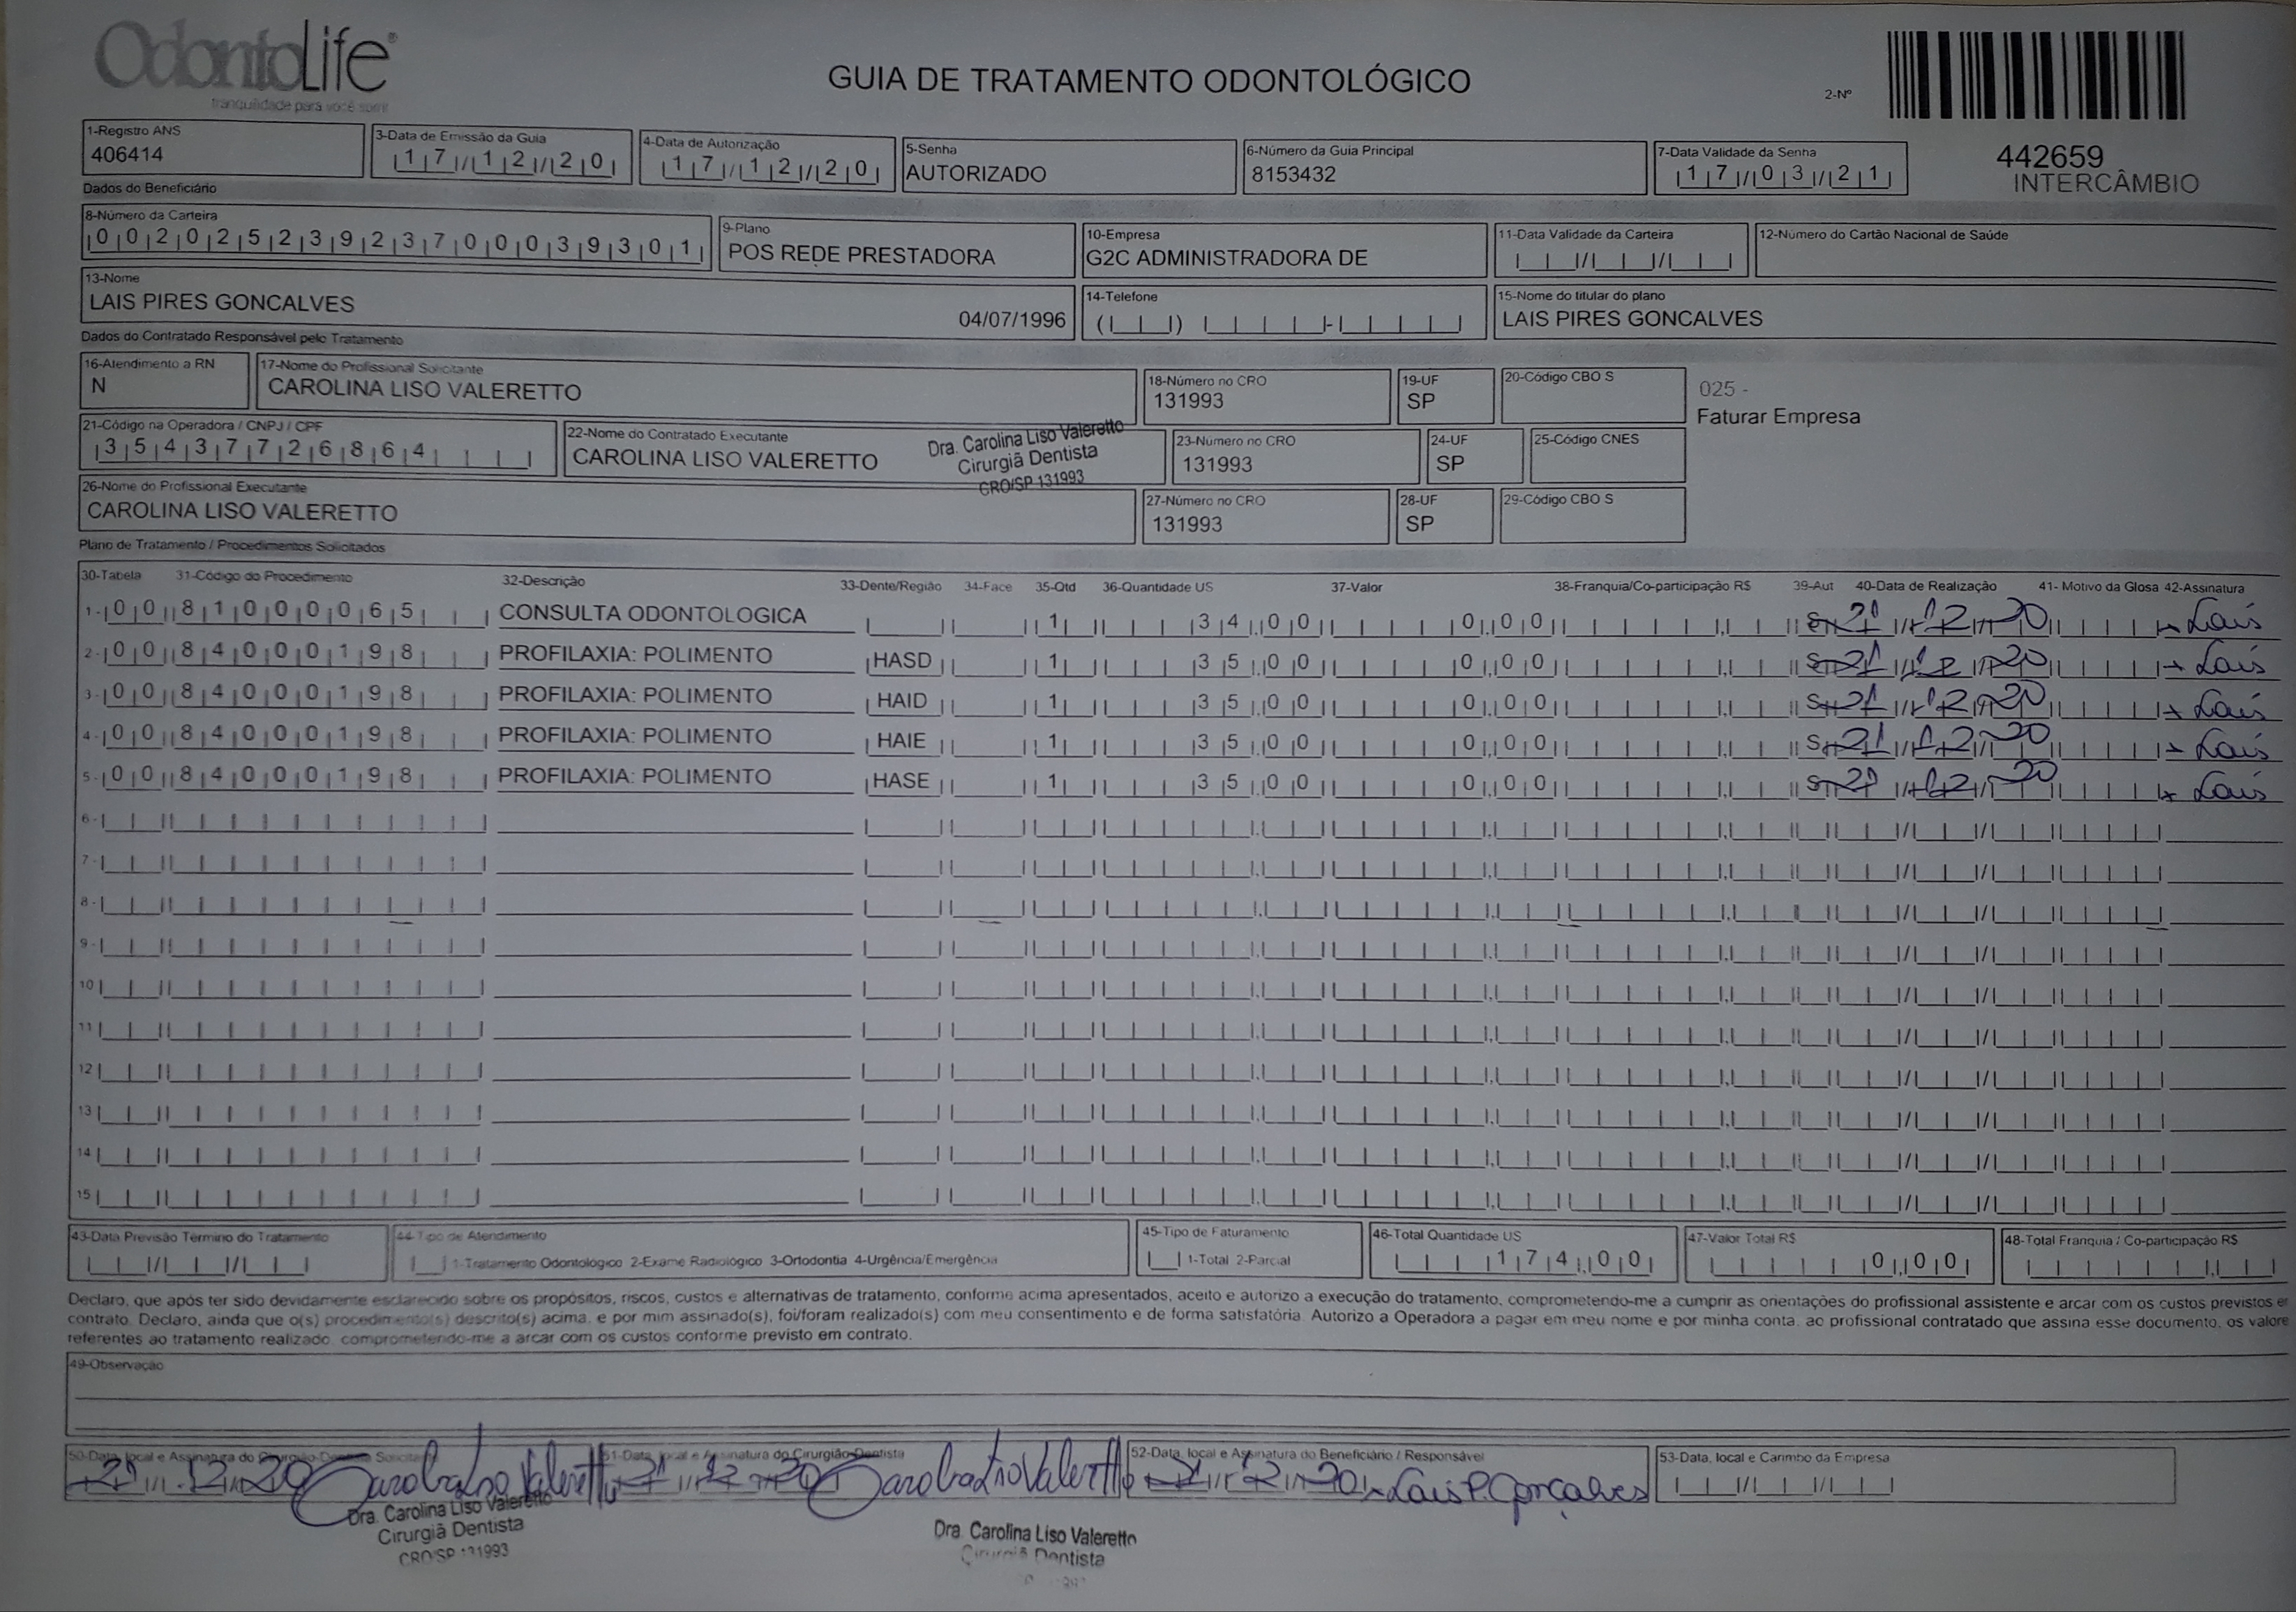 OdontoLife®
tranquilidade para você sorrir
GUIA DE TRATAMENTO ODONTOLÓGICO
2-Nº
442659
INTERCÂMBIO
1-Registro ANS
406414
3-Data de Emissão da Guia
17/12/20
4-Data de Autorização
17/12/20
5-Senha
AUTORIZADO
6-Número da Guia Principal
8153432
7-Data Validade da Senha
17/03/21
Dados do Beneficiário
8-Número da Carteira
00202523923700039301
9-Plano
POS REDE PRESTADORA
10-Empresa
G2C ADMINISTRADORA DE
11-Data Validade da Carteira
12-Número do Cartão Nacional de Saúde
13-Nome
LAIS PIRES GONCALVES
04/07/1996
14-Telefone
15-Nome do titular do plano
LAIS PIRES GONCALVES
Dados do Contratado Responsável pelo Tratamento
16-Atendimento a RN
N
17-Nome do Profissional Solicitante
CAROLINA LISO VALERETTO
18-Número no CRO
131993
19-UF
SP
20-Código CBO S
025 -
Faturar Empresa
21-Código na Operadora / CNPJ / CPF
35437726864
22-Nome do Contratado Executante
CAROLINA LISO VALERETTO
Dra. Carolina Liso Valeretto
Cirurgiã Dentista
CRO/SP 131993
23-Número no CRO
131993
24-UF
SP
25-Código CNES
26-Nome do Profissional Executante
CAROLINA LISO VALERETTO
27-Número no CRO
131993
28-UF
SP
29-Código CBO S
Plano de Tratamento / Procedimentos Solicitados
30-Tabela 31-Código do Procedimento 32-Descrição 33-Dente/Região 34-Face 35-Qtd 36-Quantidade US 37-Valor 38-Franquia/Co-participação R$ 39-Aut 40-Data de Realização 41- Motivo da Glosa 42-Assinatura
1- 00 81000065 CONSULTA ODONTOLOGICA 1 34,00 0,00 S 21/12/20 Laís
2- 00 84000198 PROFILAXIA: POLIMENTO HASD 1 35,00 0,00 S 21/12/20 Laís
3- 00 84000198 PROFILAXIA: POLIMENTO HAID 1 35,00 0,00 S 21/12/20 Laís
4- 00 84000198 PROFILAXIA: POLIMENTO HAIE 1 35,00 0,00 S 21/12/20 Laís
5- 00 84000198 PROFILAXIA: POLIMENTO HASE 1 35,00 0,00 S 21/12/20 Laís
6-
7-
8-
9-
10
11
12
13
14
15
43-Data Previsão Término do Tratamento
44-Tipo de Atendimento
1-Tratamento Odontológico 2-Exame Radiológico 3-Ortodontia 4-Urgência/Emergência
45-Tipo de Faturamento
1-Total 2-Parcial
46-Total Quantidade US
174,00
47-Valor Total R$
0,00
48-Total Franquia / Co-participação R$
Declaro, que após ter sido devidamente esclarecido sobre os propósitos, riscos, custos e alternativas de tratamento, conforme acima apresentados, aceito e autorizo a execução do tratamento, comprometendo-me a cumprir as orientações do profissional assistente e arcar com os custos previstos e
contrato. Declaro, ainda que o(s) procedimento(s) descrito(s) acima, e por mim assinado(s), foi/foram realizado(s) com meu consentimento e de forma satisfatória. Autorizo a Operadora a pagar em meu nome e por minha conta, ao profissional contratado que assina esse documento, os valore
referentes ao tratamento realizado, comprometendo-me a arcar com os custos conforme previsto em contrato.
49-Observação
50-Data, local e Assinatura do Cirurgião-Dentista Solicitante
21/12/20 Carolina Liso Valeretto
51-Data, local e Assinatura do Cirurgião-Dentista
21/12/20 Carolina Liso Valeretto
52-Data, local e Assinatura do Beneficiário / Responsável
21/12/20 x Laís P. Gonçalves
53-Data, local e Carimbo da Empresa
Dra. Carolina Liso Valeretto
Cirurgiã Dentista
CRO/SP 131993
Dra. Carolina Liso Valeretto
Cirurgiã Dentista